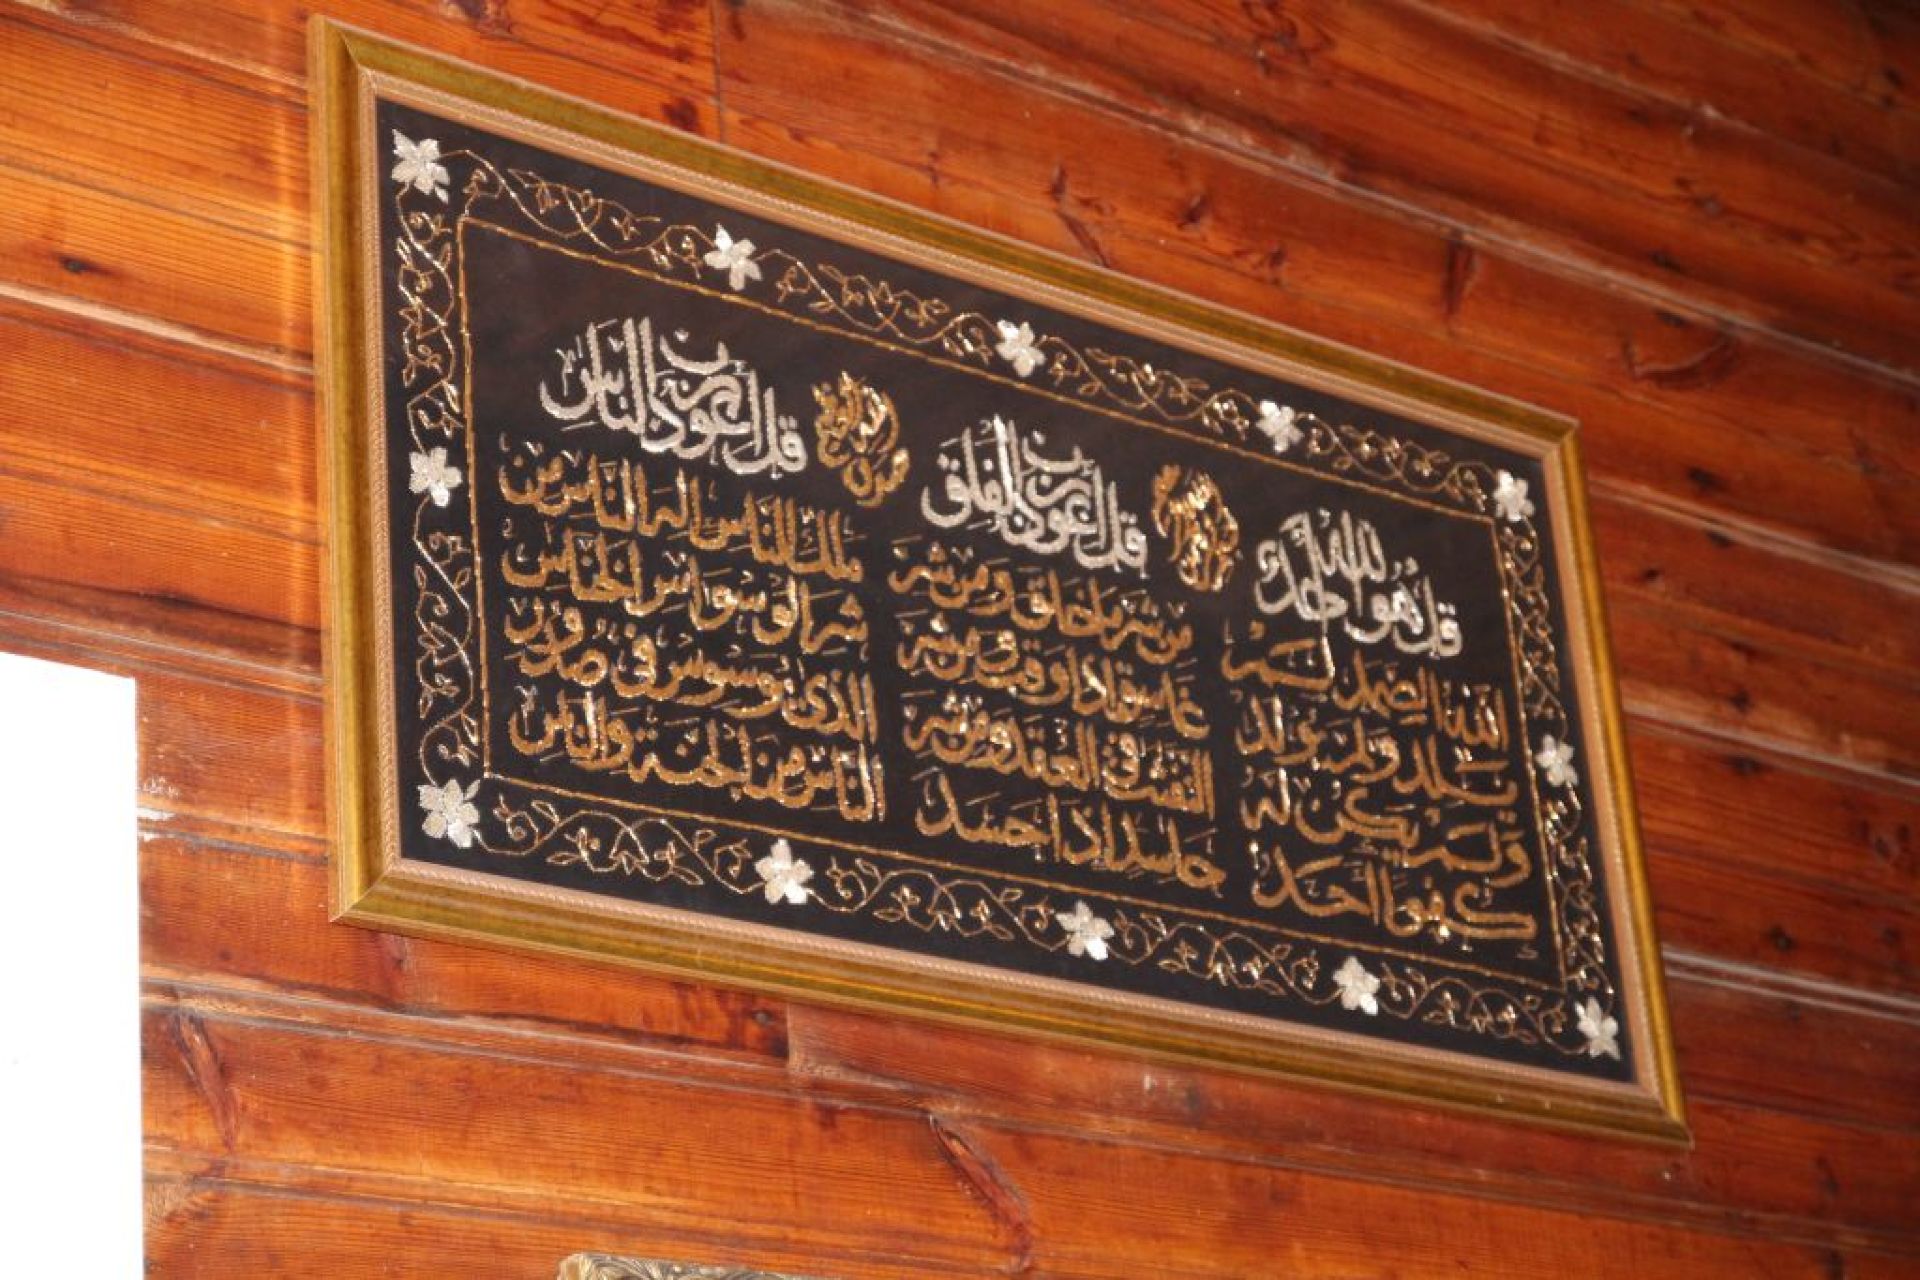 قل هو الله أحد
الله الصمد لم
يلد ولم يولد
ولم يكن له
كفوا أحد
قل أعوذ برب الفلق
من شر ما خلق ومن شر
غاسق اذا وقب ومن شر
النفثت في العقد ومن شر
حاسد اذا حسد
قل أعوذ برب الناس
ملك الناس اله الناس من
شر الوسواس الخناس
الذى يوسوس فى صدور
الناس من الجنة والناس